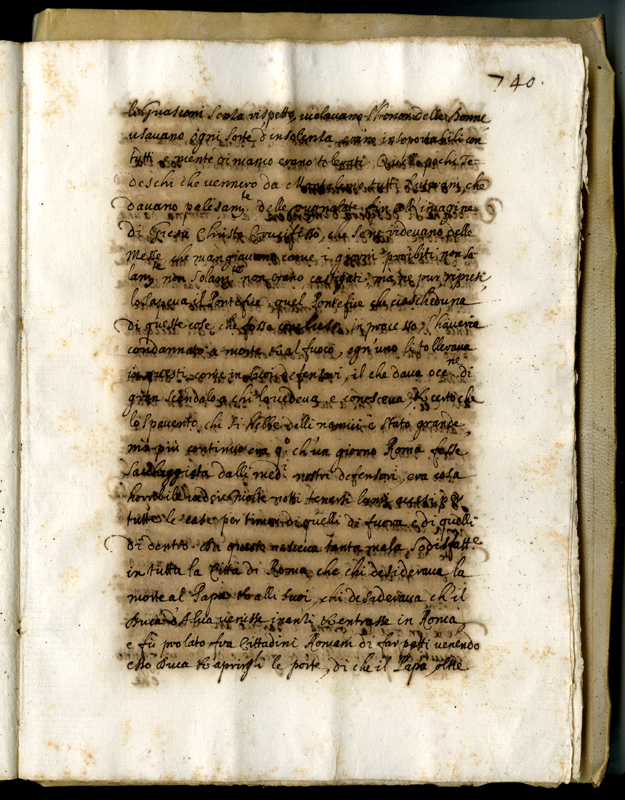 740.
li Guasconi senza rispetto violavano l'honor delle Donne
usavano ogni sorte d'insolenza, come insoportabili con
tutti, e niente di manco erano tolerati. Quelli pochi Te-
deschi che vennero da tutti Luterani, che
davano palesam.te delle pugnalate fin all'imagine
di Giesù Christo Crocifisso, che se ne ridevano delle
Messe, che mangiavano carne i giorni proibiti, non so-
lam.te non solam.te non erano castigati, ma ne pur ripresi,
lo sapeva il Pontefice, quel Pontefice che ciascheduna
di queste cose, che fosse in processo, l'haveria
condannato a morte et al fuoco, ogn'uno li tollerava
in questi come in suoi defensori, il che dava occ.ne di
gran scandalo a chi lo vedeva, e conosceva et certo che
lo spavento, chi si hebbe delli nemici è stato grande,
ma più continuo era q.o ch'un giorno Roma fosse
saccheggiata dalli med.i nostri defensori, era cosa
horrobile vedere molte notti tenersi lumi per
tutte le case per timor di quelli di fuora, e di quelli
di dentro. Da questo nasceva tanta mala sodisfatt.e
in tutta la Città di Roma, che chi desiderava la
morte al Papa et alli suoi, chi desiderava ch'il
Duca d'Alva venisse inanti et entrasse in Roma,
e fù prolato fra Cittadini Romani di far patti venendo
esso Duca et aprirgli le porte, di che il Papa oltre